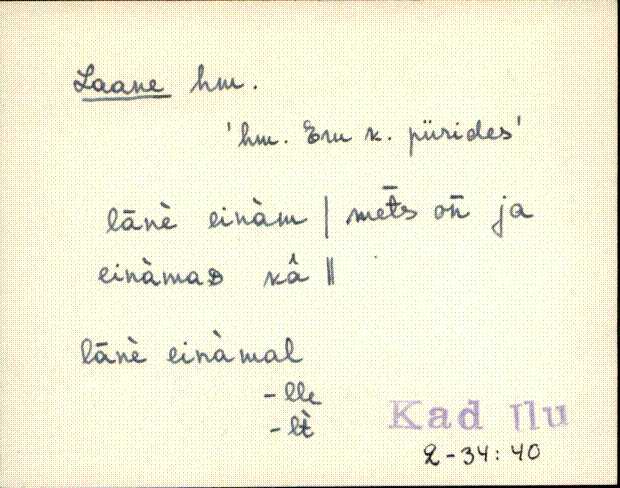 Laane hm.
'hm. Eru k. piirides'
lānè einàm | met̄s on̄ ja
einàmaᴅ kâ ||
lānè einàmal
-lle
-lt̀
Kad Ilu
2-34:40